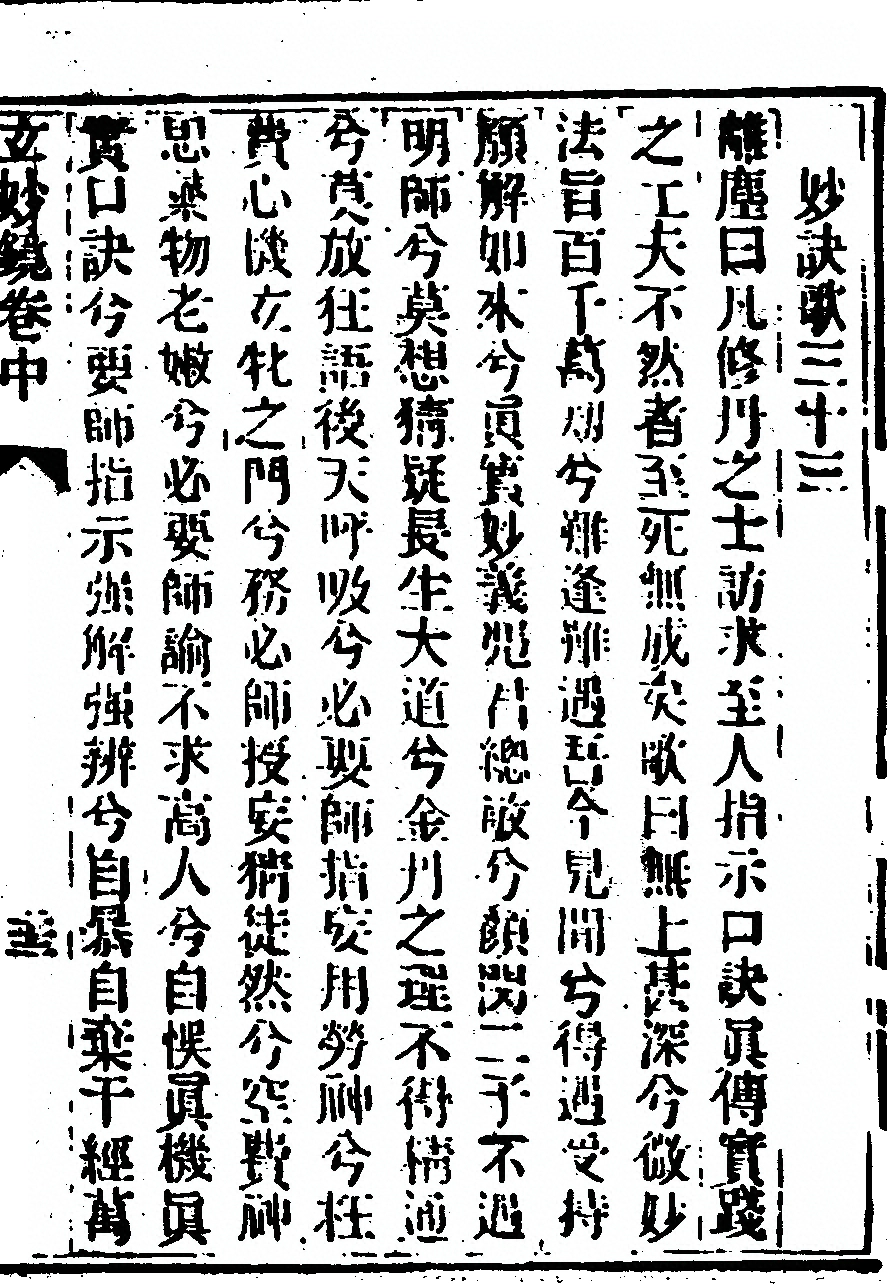 妙訣歌三十三
離塵曰凡修丹之士訪求至人指示口訣眞傳實踐
之工夫不然者至死無成矣歌曰無上甚深兮微妙
法旨百千萬刼兮難逢難遇吾今見聞兮得遇受持
願解如來兮眞實妙義君聰敏兮顔閔二子不遇
明師兮莫想猜疑長生大道兮金丹之理不情通
兮莫放狂語後天呼吸兮必要師指妄用勞神兮枉
費心機玄牝之門兮務必師授妄猜徒然兮空費神
思藥物老嫩兮必要師諭不求高人兮自悞眞機眞
實口訣兮要師指示強解强辨兮自暴自棄千經萬
玄妙鏡卷中